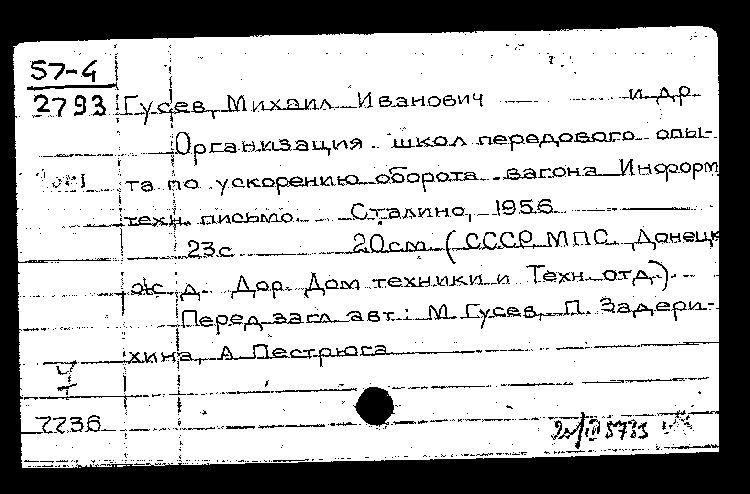 57-4
2793 Гусев, Михаил Иванович и др
Организация школ передового опы-
та по ускорению оборота вагона Информ
техн. письмо. Сталино, 1956
23с 20см. (СССР МПС. Донецк
ж д. Дор. Дом техники и Техн. отд.).
Перед загл авт: М. Гусев, П. Задери-
хина, А Пестрюга
7236